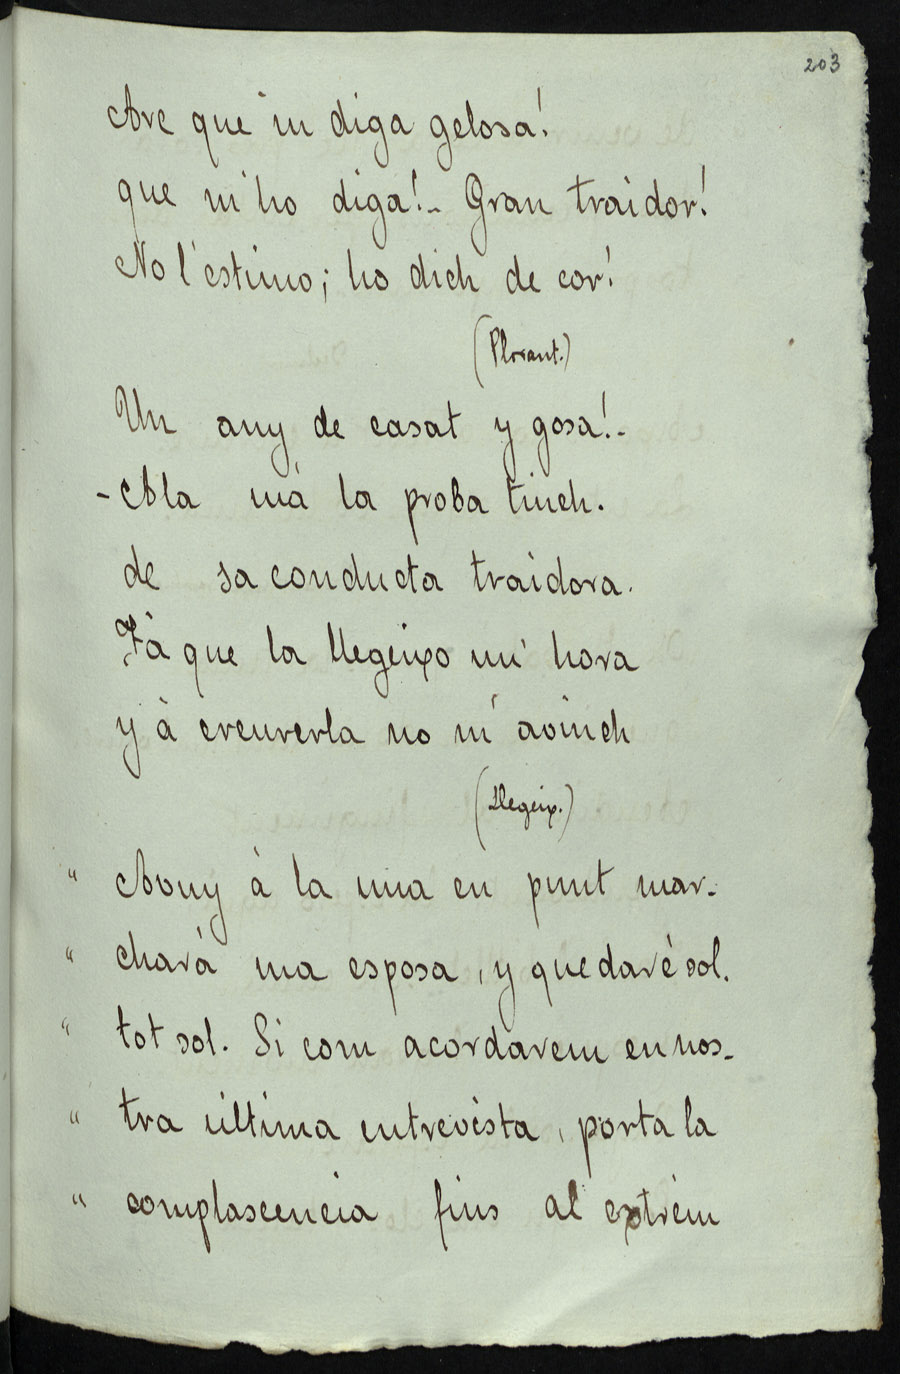 203
Are que 'm diga gelosa!
que m'ho diga!- Gran traidor!
No l'estimo; ho dich de cor!
(Plorant.)
Un any de casat y gosa!-
- A la má la proba tinch.
de sa conducta traidora.
Fá que la llegeixo mi' hora
y à creurerla no m' avinch
(Llegeix.)
" Avuy à la una en punt mar-
" chará ma esposa, y quedaré sol.
" tot sol. Si com acordarem en nos-
" tra última entrevista, porta la
" complascencia fins al extrém